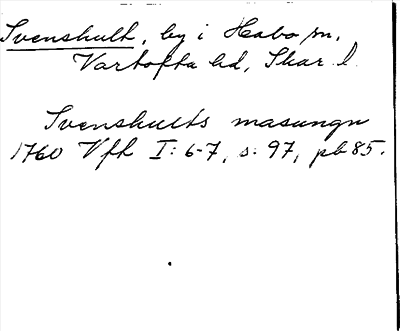 Svenshult, by i Habo sn,
Vartofta hd, Skar. l.
Svenshults masungn
1760 Vfh I: 6-7, s. 97, pb 85.